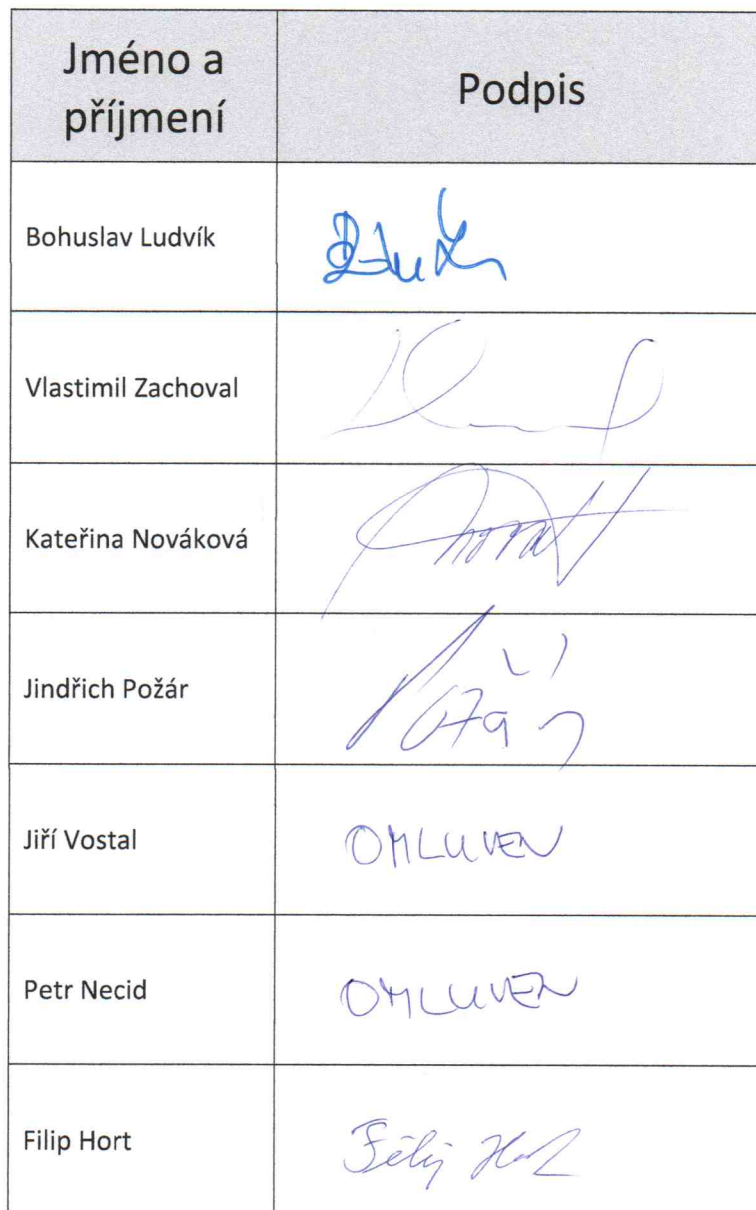 Jméno a
příjmení
Podpis
Bohuslav Ludvík
Vlastimil Zachoval
Kateřina Nováková
Jindřich Požár
Jiří Vostal
OMLUVEN
Petr Necid
OMLUVEN
Filip Hort
Filip Hort